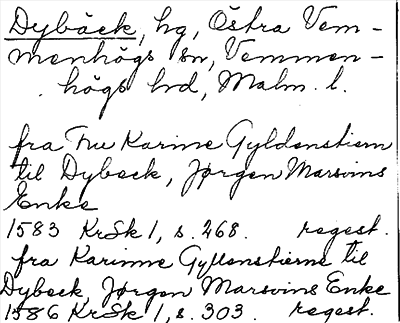 Dybäck, hg, Östra Vem-
menhögs sn, Vemmen-
högs hd, Malm. l.
fra Fru Karine Gyldenstiern
til Dybeck, Jørgen Marsvins
Enke
1583 KrSk 1, s. 268. regest.
fra Karinne Gyllenstierne til
Dybeck, Jørgen Marsvins Enke
1586 KrSk 1, s. 303. regest.